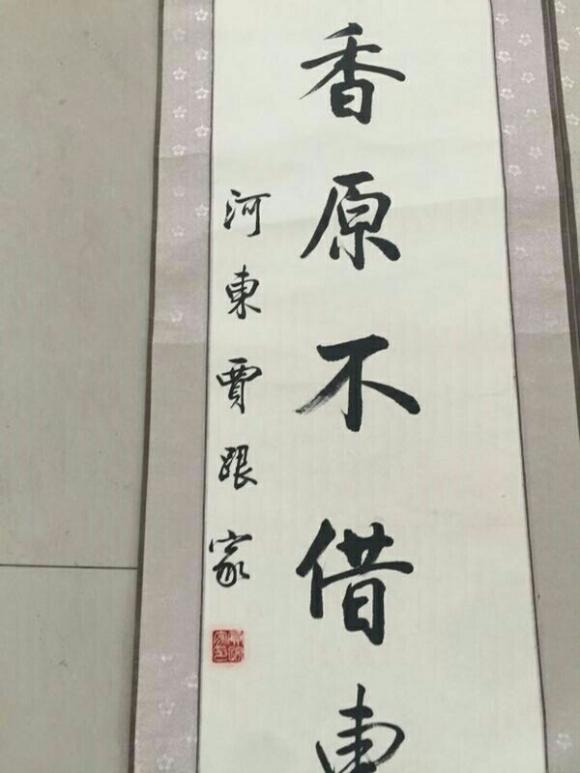 香原不借東
河東賈跟家